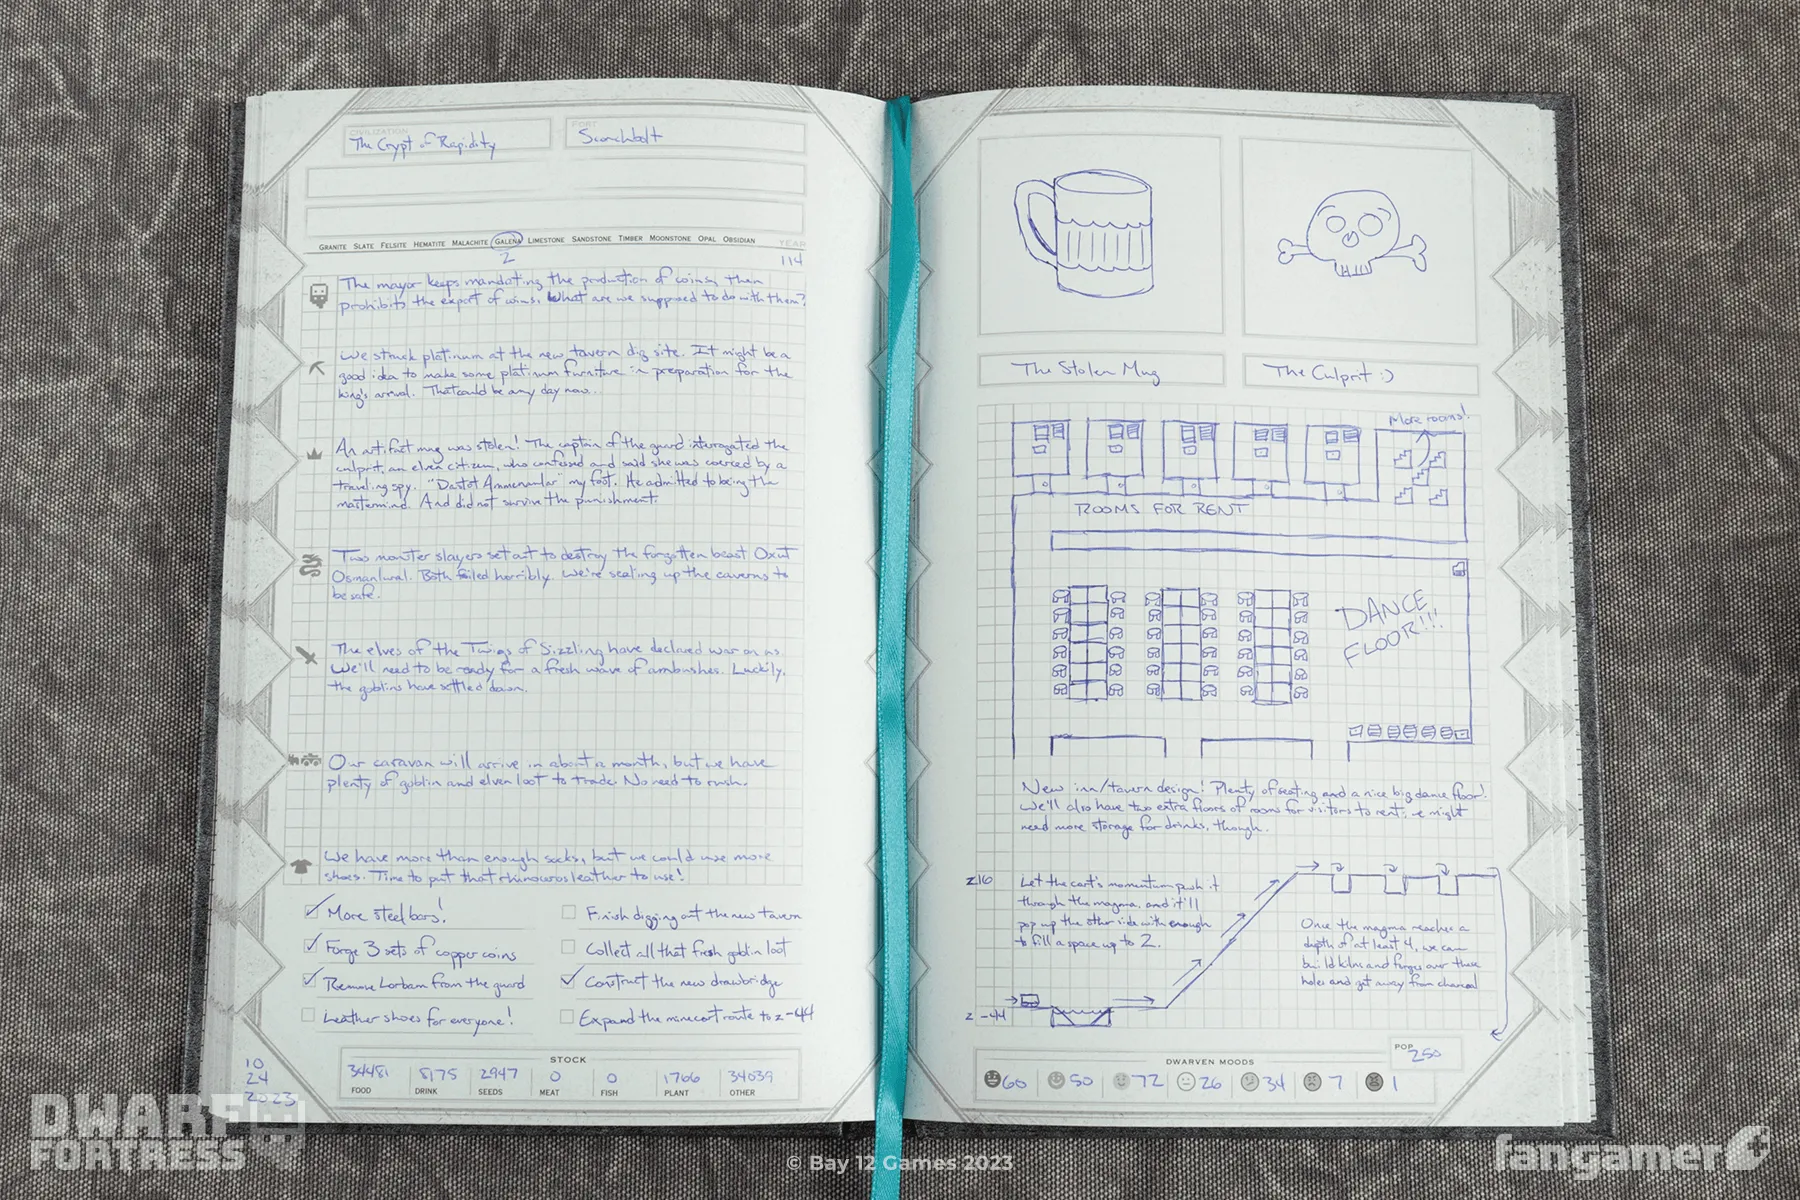 CIVILIZATION
The Crypt of Rapidity
FORT
Scorchbolt
GRANITE SLATE FELSITE HEMATITE MALACHITE GALENA LIMESTONE SANDSTONE TIMBER MOONSTONE OPAL OBSIDIAN YEAR
2
114
The mayor keeps mandating the production of coins, then
prohibits the export of coins. What are we supposed to do with them?
We struck platinum at the new tavern dig site. It might be a
good idea to make some platinum furniture in preparation for the
king's arrival. That could be any day now...
An artifact mug was stolen! The captain of the guard interrogated the
culprit, an elven citizen, who confessed and said she was coerced by a
traveling spy. "Dastot my foot. He admitted to being the
mastermind. And did not survive the punishment.
Two monster slayers set out to destroy the forgotten beast Oxut
Osmanlural. Both failed horribly. We're sealing up the caverns to
be safe.
The elves of the Twigs of Sizzling have declared war on us.
We'll need to be ready for a fresh wave of ambushes. Luckily,
the goblins have settled down.
Our caravan will arrive in about a month, but we have
plenty of goblin and elven loot to trade. No need to rush.
We have more than enough socks, but we could use more
shoes. Time to put that rhinoceros leather to use!
More steel bars!
Forge 3 sets of copper coins
Remove Lorbam from the guard
Leather shoes for everyone!
Finish digging out the new tavern
Collect all that fresh goblin loot
Construct the new drawbridge
Expand the minecart route to z-44
STOCK
34481 8175 2947 0 0 1766 34039
FOOD DRINK SEEDS MEAT FISH PLANT OTHER
10
24
2023
The Stolen Mug
The Culprit :)
More rooms!
ROOMS FOR RENT
DANCE
FLOOR!!!
New inn/tavern design! Plenty of seating and a nice big dance floor!
We'll also have two extra floors of rooms for visitors to rent, we might
need more storage for drinks, though.
z16
Let the cart's momentum push it
through the magma, and it'll
pop up the other side with enough
to fill a space up to 2.
Once the magma reaches a
depth of at least 4, we can
build kilns and forges over these
holes and get away from charcoal
z -44
DWARVEN MOODS
POP
250
60 50 72 26 34 7 1
DWARF
FORTRESS
© Bay 12 Games 2023
fangamer